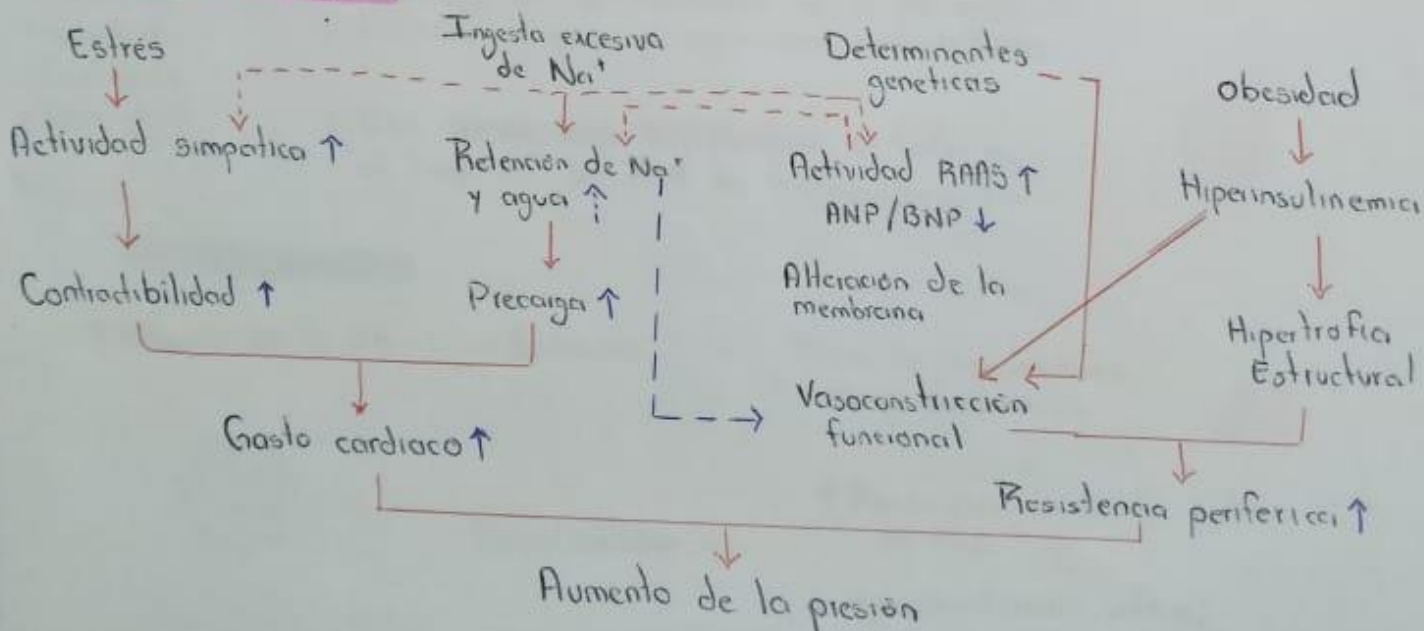 Estrés
Ingesta excesiva
de Na⁺
Determinantes
geneticas
Obesidad
Actividad simpatica ↑
Retención de Na⁺
y agua ↑
Actividad RAAS ↑
ANP/BNP ↓
Hiperinsulinemia
Contractibilidad ↑
Precarga ↑
Alteración de la
membrana
Hipertrofia
Estructural
Vasoconstricción
funcional
Gasto cardiaco ↑
Resistencia periferica ↑
Aumento de la presión